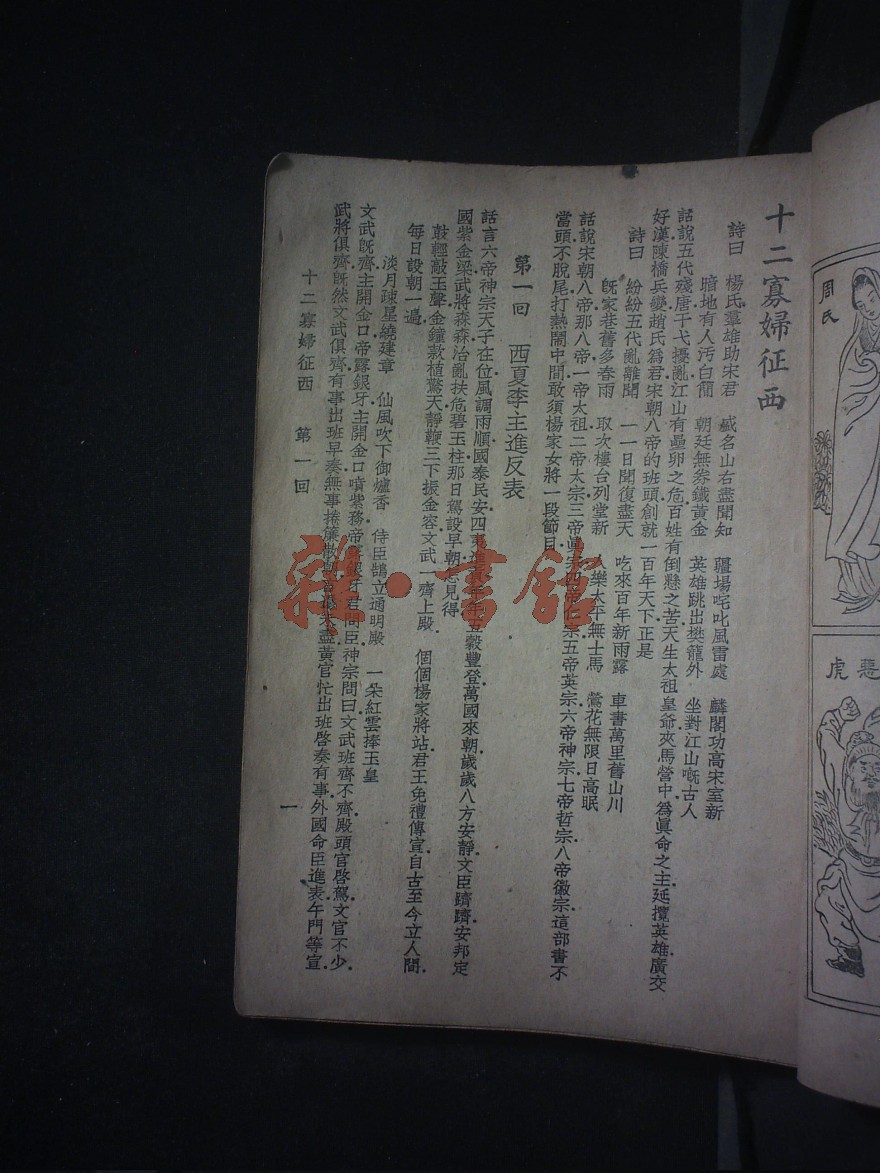 十二寡婦征西
詩曰　楊氏羣雄助宋君　威名山右盡聞知　疆場咤叱風雷處　麟閣功高宋室新
暗地有人汚白簡　朝廷無券鐵黃金　英雄跳出樊籠外　坐對江山嘅古人
話說五代殘唐干戈擾亂江山有壘卵之危百姓有倒懸之苦天生太祖皇爺夾馬營中爲眞命之主延攬英雄廣交
好漢陳橋兵變趙氏爲君宋朝八帝的班頭創就一百年天下正是
詩曰　紛紛五代亂離聞　一一日聞復盡天　吃來百年新雨露　車書萬里舊山川
旣家巷舊多春雨　取次樓台列堂新　人樂太平無士馬　鶯花無限日高眠
話說宋朝八帝那八帝一帝太祖二帝太宗三帝眞宗四帝仁宗五帝英宗六帝神宗七帝哲宗八帝徽宗這部書不
當頭不脫尾打熱鬧中間敢須楊家女將一段節目
第一回　西夏李主進反表
話言六帝神宗天子在位風調雨順國泰民安四夷進表年年五穀豐登萬國來朝歲歲八方安靜文臣躋躋安邦定
國紫金梁武將森森治亂扶危碧玉柱那日駕設早朝怎見得
鼓輕敲玉聲金鐘款植驚天靜鞭三下振金容文武一齊上殿　個個楊家將站君王免禮傳宣自古至今立人間
每日設朝一遍
淡月疎星繞建章　仙風吹下御爐香　侍臣鵠立通明殿　一朵紅雲捧玉皇
文武旣齊主開金口帝露銀牙主開金口噴紫務帝露銀牙君問臣神宗問曰文武班齊不齊殿頭官啓駕文官不少
武將俱齊旣然文武俱齊有事出班早奏無事捲簾散朝言還未盡黃官忙出班啓奏有事外國命臣進表午門等宣
十二寡婦征西　第一回
一
周氏
惡虎
雜·書館